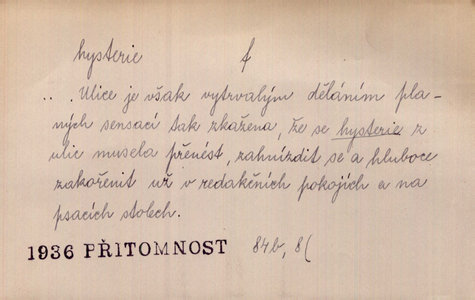 hysterie f
... Ulice je však vytrvalým děláním pla-
ných sensací tak zkažena, že se hysterie z
ulic musela přenést, zahnízdit se a hluboce
zakořenit už v redakčních pokojích a na
psacích stolech.
1936 PŘITOMNOST 84b, 8(